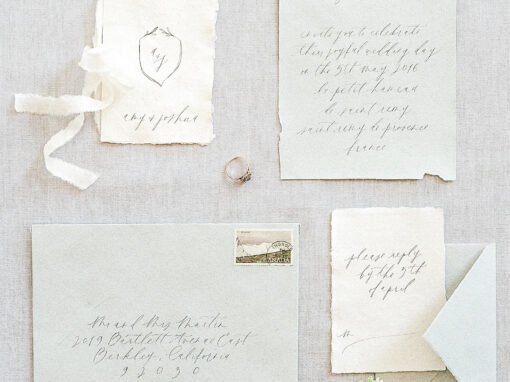 amy & joshua
invite you to celebrate
their joyful wedding day
on the 5th may 2016
le petit hameau
de saint remy
saint remy de provence
france
Mr and Mrs Martin
2019 Bartlett Avenue East
Berkley, California
92030
please reply
by the 5th
of april
M